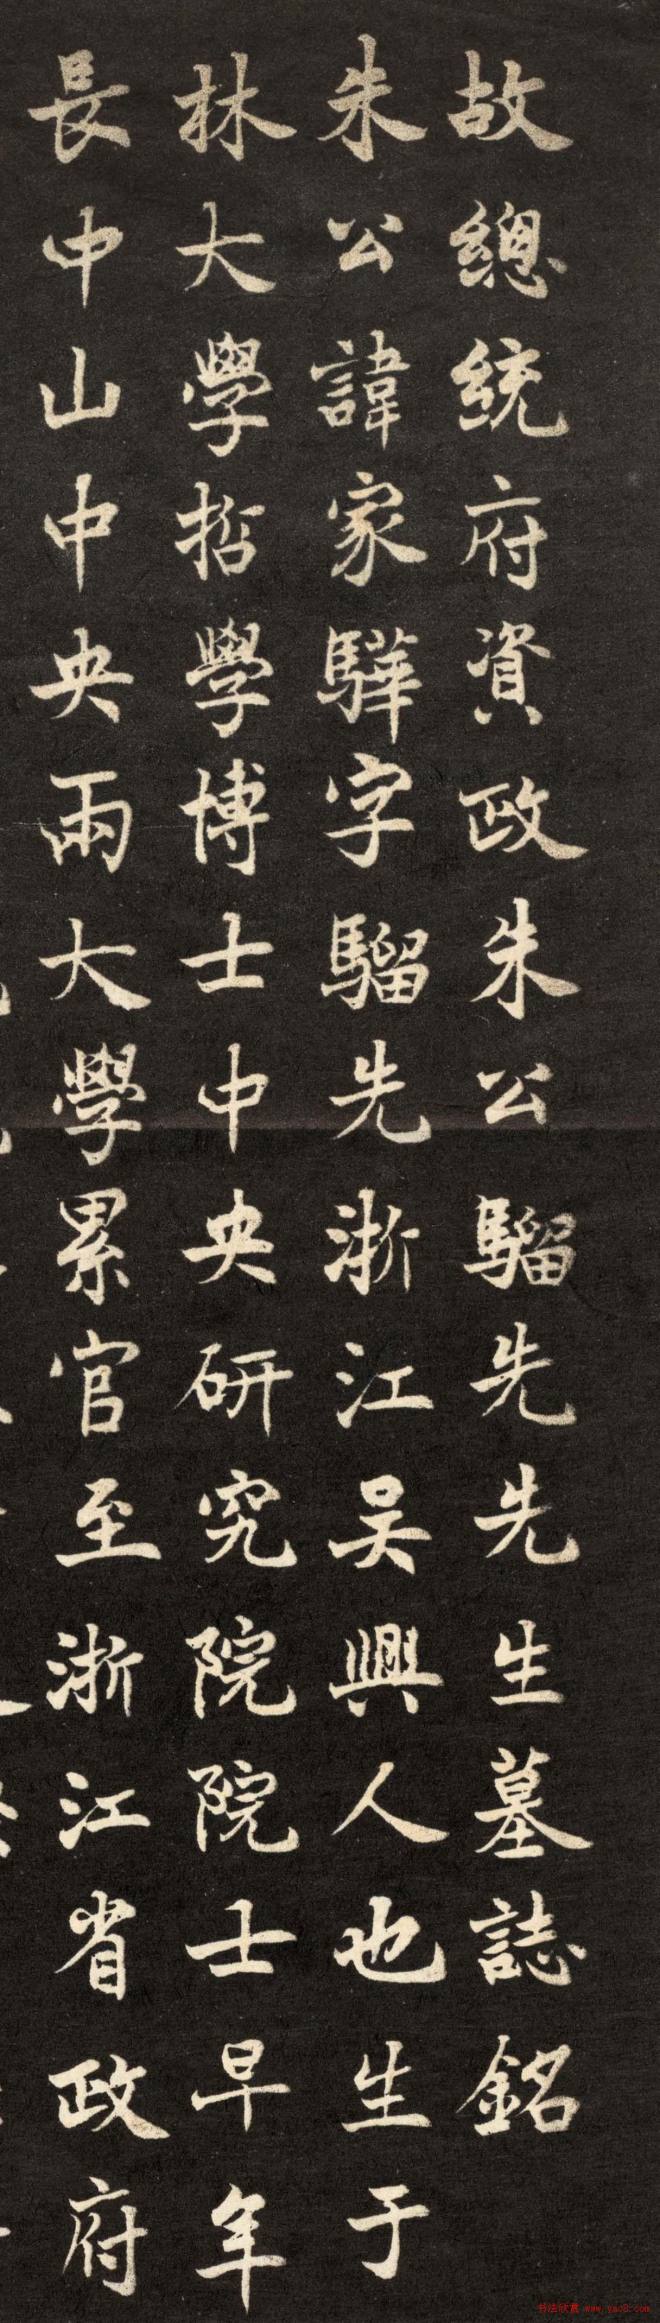 故總統府資政朱公 騮先先生墓誌銘
朱公諱家驊字騮先浙江吴興人也生于
林大學哲學博士中央研究院院士早年
長中山中央兩大學累官至浙江省政府
书法欣赏 www.yac8.com